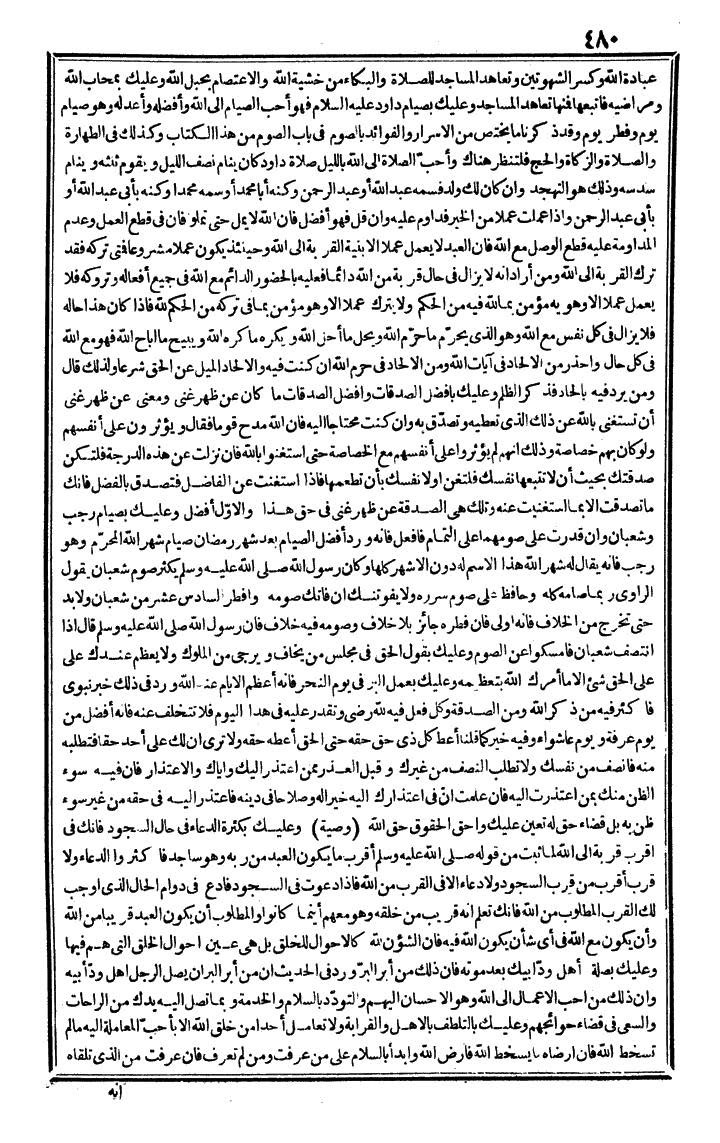 ٤٨٠
عبادة الله وكسر الشهوتين وتعاهد المساجد للصلاة والبكاء من خشية الله والاعتصام بحبل الله وعليك بمحاب الله
ومراضيه فاتبعها فمنها تعاهد المساجد وعليك بصيام داود عليه السلام فهو أحب الصيام الى الله وأفضله وأعدله وهو صيام
يوم وفطر يوم وقد ذكرنا ما يختص من الاسرار والفوائد بالصوم فى باب الصوم من هذا الكتاب وكذلك فى الطهارة
والصلاة والزكاة والحج فلتنظر هناك وأحب الصلاة الى الله بالليل صلاة داود كان ينام نصف الليل ويقوم ثلثه وينام
سدسه وذلك هو التهجد وان كان لك ولد فسمه عبد الله أو عبد الرحمن وكنه أبا محمد أو سمه محمدا وكنه بأبى عبد الله أو
بأبى عبد الرحمن واذا عملت عملا من الخير فداوم عليه وان قل فهو أفضل فان الله لا يمل حتى تملوا فان فى قطع العمل وعدم
المداومة عليه قطع الوصل مع الله فان العبد لا يعمل عملا الا بنية القربة الى الله وحينئذ يكون عملا مشروعا فتى تركه فقد
ترك القربة الى الله ومن أراد انه لا يزال فى حال قربة من الله دائما فعليه بالحضور الدائم مع الله فى جميع أفعاله وتروكه فلا
يعمل عملا الا وهو به مؤمن بما لله فيه من الحكم ولا يترك عملا الا وهو مؤمن بما فى تركه من الحكم لله فاذا كان هذا حاله
فلا يزال فى كل نفس مع الله وهو الذى يحرّم ما حرّم الله ويحل ما أحل الله ويكره ما كره الله ويبيح ما اباح الله فهو مع الله
فى كل حال واحذر من الالحاد فى آيات الله ومن الالحاد فى حرم الله ان كنت فيه والالحاد الميل عن الحق شرعا ولذلك قال
ومن يرد فيه بالحاد فذكر الظلم وعليك بافضل الصدقات وافضل الصدقات ما كان عن ظهر غنى ومعنى عن ظهر غنى
أن تستغنى بالله عن ذلك الذى تعطيه وتصدّق به وان كنت محتاجا اليه فان الله مدح قوما فقال ويؤثرون على أنفسهم
ولو كان بهم خصاصة وذلك انهم لم يؤثروا على أنفسهم مع الخصاصة حتى استغنوا بالله فان نزلت عن هذه الدرجة فلتكن
صدقتك بحيث أن لا تتبعها نفسك فلتغن اولا نفسك بأن تطعمها فاذا استغنت عن الفاضل فتصدق بالفضل فانك
ما تصدقت الا بما استغنيت عنه وتلك هى الصدقة عن ظهر غنى فى حق هذا والاوّل أفضل وعليك بصيام رجب
وشعبان وان قدرت على صومهما على التمام فافعل فانه ورد أفضل الصيام بعد شهر رمضان صيام شهر الله المحرّم وهو
رجب فانه يقال له شهر الله هذا الاسم له دون الاشهر كلها وكان رسول الله صلى الله عليه وسلم يكثر صوم شعبان يقول
الراوى ربما صامه كله وحافظ على صوم سرره ولا يفوتنك ان فاتك صومه وافطر السادس عشر من شعبان ولا بد
حتى تخرج من الخلاف فانه اولى فان فطره جائز بلا خلاف وصومه فيه خلاف فان رسول الله صلى الله عليه وسلم قال اذا
انتصف شعبان فامسكوا عن الصوم وعليك بقول الحق فى مجلس من يخاف ويرجى من الملوك ولا يعظم عندك على
على الحق شئ الا ما أمرك الله بتعظيمه وعليك بعمل البر فى يوم النحر فانه أعظم الايام عند الله ورد فى ذلك خبر نبوى
فاكثر فيه من ذكر الله ومن الصدقة وكل فعل فيه لله رضى وتقدر عليه فى هذا اليوم فلا تتخلف عنه فانه أفضل من
يوم عرفة ويوم عاشواء وفيه خبر كما قلنا أعط كل ذى حق حقه حتى الحق أعطه حقه ولا ترى ان لك على أحد حقا فتطلبه
منه فانصف من نفسك ولا تطلب النصف من غيرك و قبل العذر ممن اعتذر اليك واياك والاعتذار فان فيه سوء
الظن منك بمن اعتذرت اليه فان علمت انّ فى اعتذارك اليه خير اله وصلاحا فى دينه فاعتذر اليه فى حقه من غير سوء
ظن به بل قضاء حق له تعين عليك واحق الحقوق حق الله (وصية) وعليك بكثرة الدعاء فى حال السجود فانك فى
اقرب قربة الى الله لما ثبت من قوله صلى الله عليه وسلم أقرب ما يكون العبد من ربه وهو ساجد فاكثروا الدعاء ولا
قرب أقرب من قرب السجود ولا دعاء الا فى القرب من الله فاذا دعوت فى السجود فادع فى دوام الحال الذى اوجب
لك القرب المطلوب من الله فانك تعلم انه قريب من خلقه وهو معهم أينما كانوا والمطلوب أن يكون العبد قريبا من الله
وأن يكون مع الله فى أى شأن يكون الله فيه فان الشؤن لله كالاحوال للخلق بل هى عين احوال الخلق التى هم فيها
وعليك بصلة أهل ودّ أبيك بعد موته فان ذلك من أبر البرّ ورد فى الحديث ان من أبر البر ان يصل الرجل اهل ودّ أبيه
وان ذلك من احب الاعمال الى الله وهو الاحسان اليهم والتودّد بالسلام والخدمة وبما تصل اليه يدك من الراحات
والسعى فى قضاء حوائجهم وعليك بالتلطف بالاهل والقرابة ولا تعامل أحدا من خلق الله الا بأحبّ المعاملة اليه مالم
تسخط الله فان ارضاه ما يسخط الله فارض الله وابدأ بالسلام على من عرفت ومن لم تعرف فان عرفت من الذى تلقاه
انه